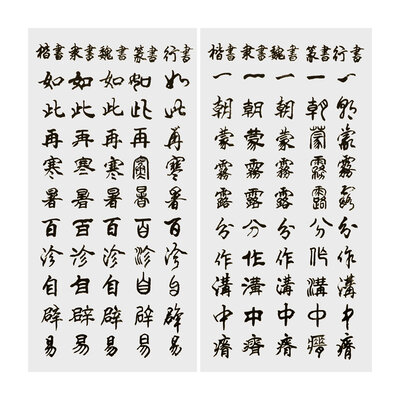 楷書
一朝蒙霧露分作溝中瘠
隶書
一朝蒙霧露分作溝中瘠
魏書
一朝蒙霧露分作溝中瘠
篆書
一朝蒙霧露分作溝中瘠
行書
一朝蒙霧露分作溝中瘠
楷書
如此再寒暑百沴自辟易
隶書
如此再寒暑百沴自辟易
魏書
如此再寒暑百沴自辟易
篆書
如此再寒暑百沴自辟易
行書
如此再寒暑百沴自辟易